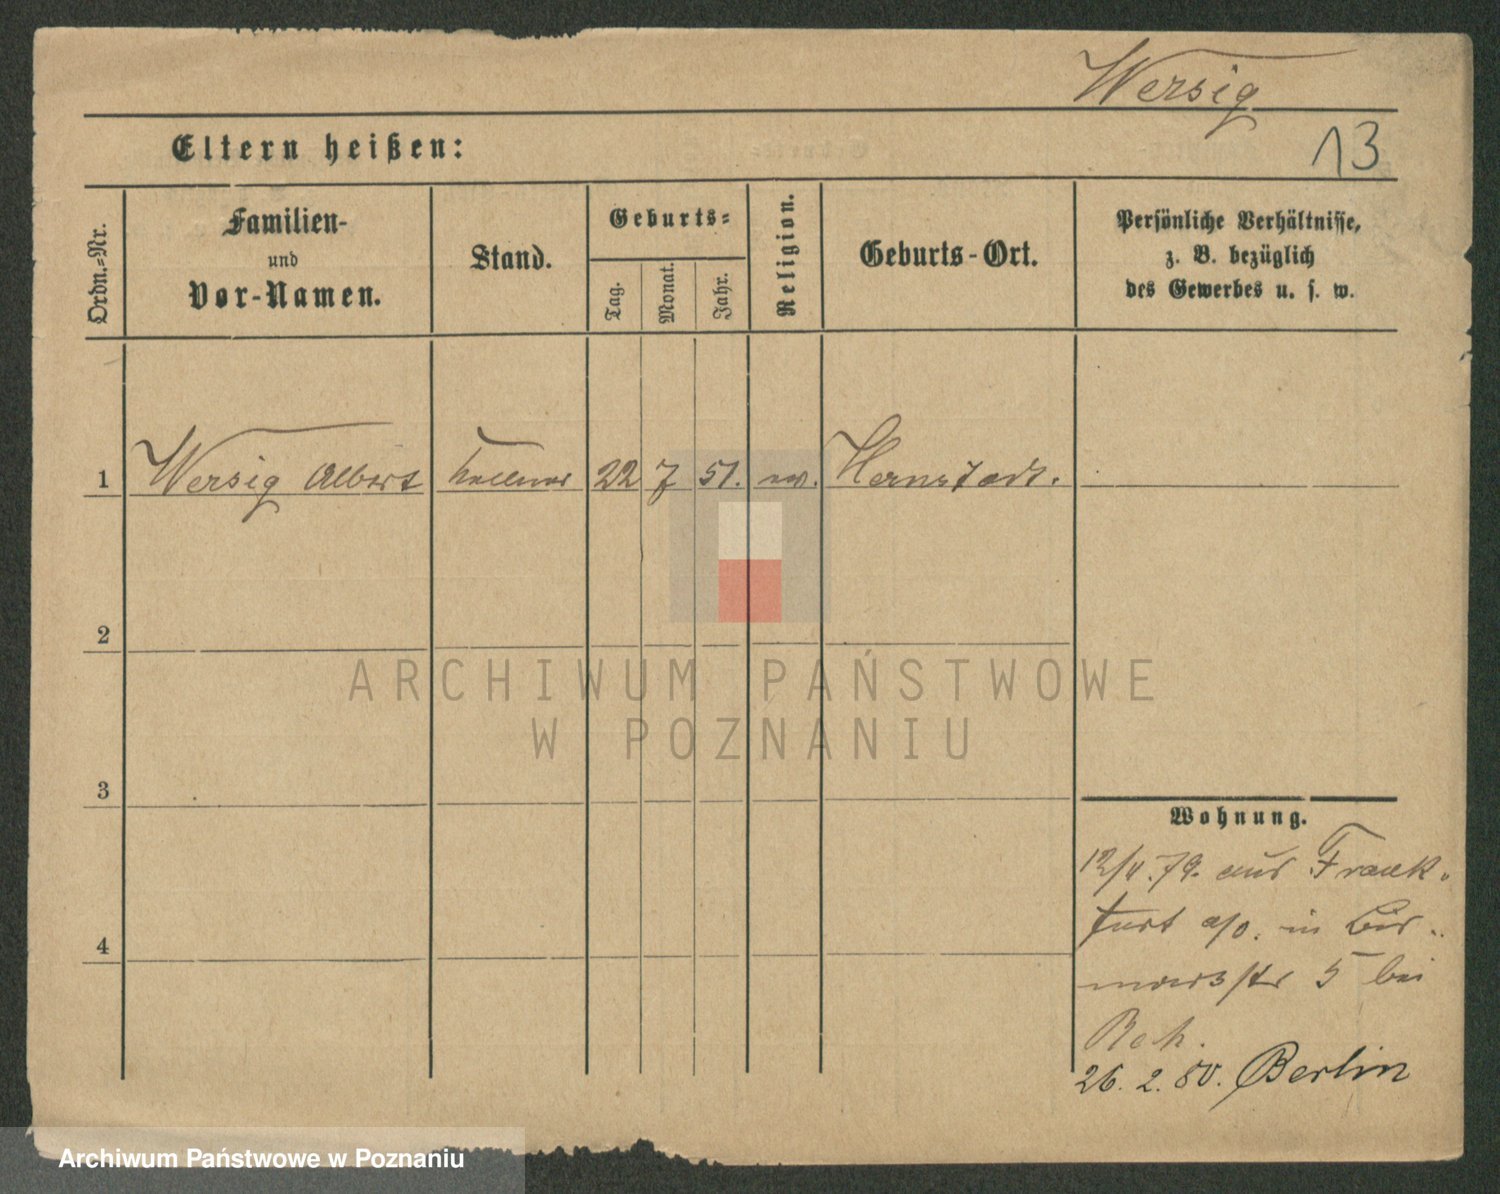 Wersig
Eltern heißen:
13
Ordn.-Nr.
Familien-
und
Vor-Namen.
Stand.
Geburts-
Tag.
Monat.
Jahr.
Religion.
Geburts-Ort.
Persönliche Verhältnisse,
z. B. bezüglich
des Gewerbes u. s. w.
1 Wersig Albert Kellner 22 7 51. ev. Hernstadt.
2
ARCHIWUM PAŃSTWOWE
W POZNANIU
3
Wohnung.
12/4.79. aus Frank-
furt a/O. in Bis-
marckstr 5 bei
26. 2. 80. Berlin
4
Archiwum Państwowe w Poznaniu